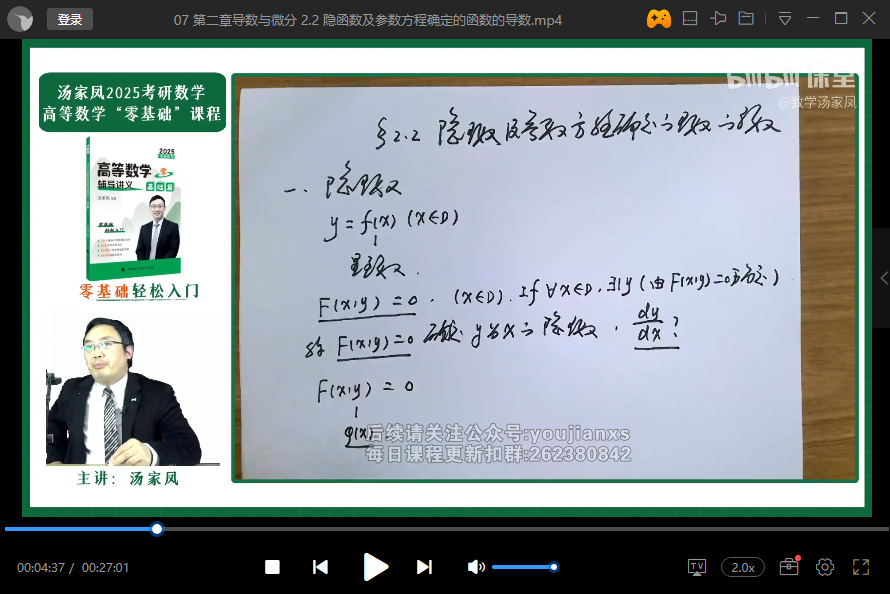 登录
07 第二章导数与微分 2.2 隐函数及参数方程确定的函数的导数.mp4
汤家凤2025考研数学
高等数学“零基础”课程
2025
高等数学
辅导讲义
基础篇
零基础
轻松入门
零基础轻松入门
主讲：汤家凤
bilibili 课堂
@数学汤家凤
§2.2 隐函数及参数方程确定的函数的导数
一、隐函数
y = f(x) (x∈D)
显函数.
F(x,y) = 0, (x∈D). If ∀x∈D, ∃!y (由 F(x,y)=0 确定)
称 F(x,y)=0 确定 y 为 x 的隐函数, dy/dx ?
F(x,y) = 0
φ(x)
后续请关注公众号:youjianxs
每日课程更新扣群:262380842
00:04:37 / 00:27:01
TV
2.0x